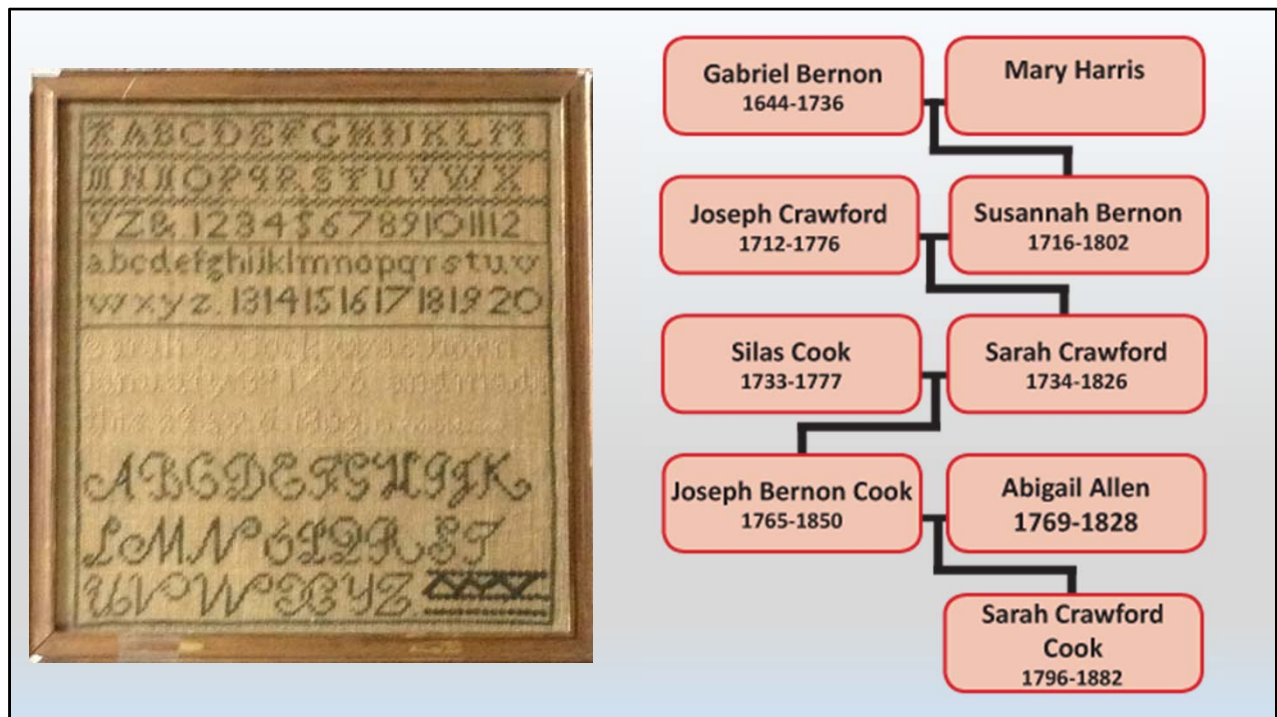 AABCDEFGHIJKLM
MNNOPQRSTUVWX
YZ& 123456789101112
abcdefghijklmnopqrstuv
wxyz. 1314151617181920
Cook was born
this
ABCDEFGHIJK
LMNOPQRST
UVWXYZ
Gabriel Bernon
1644-1736
Mary Harris
Joseph Crawford
1712-1776
Susannah Bernon
1716-1802
Silas Cook
1733-1777
Sarah Crawford
1734-1826
Joseph Bernon Cook
1765-1850
Abigail Allen
1769-1828
Sarah Crawford
Cook
1796-1882